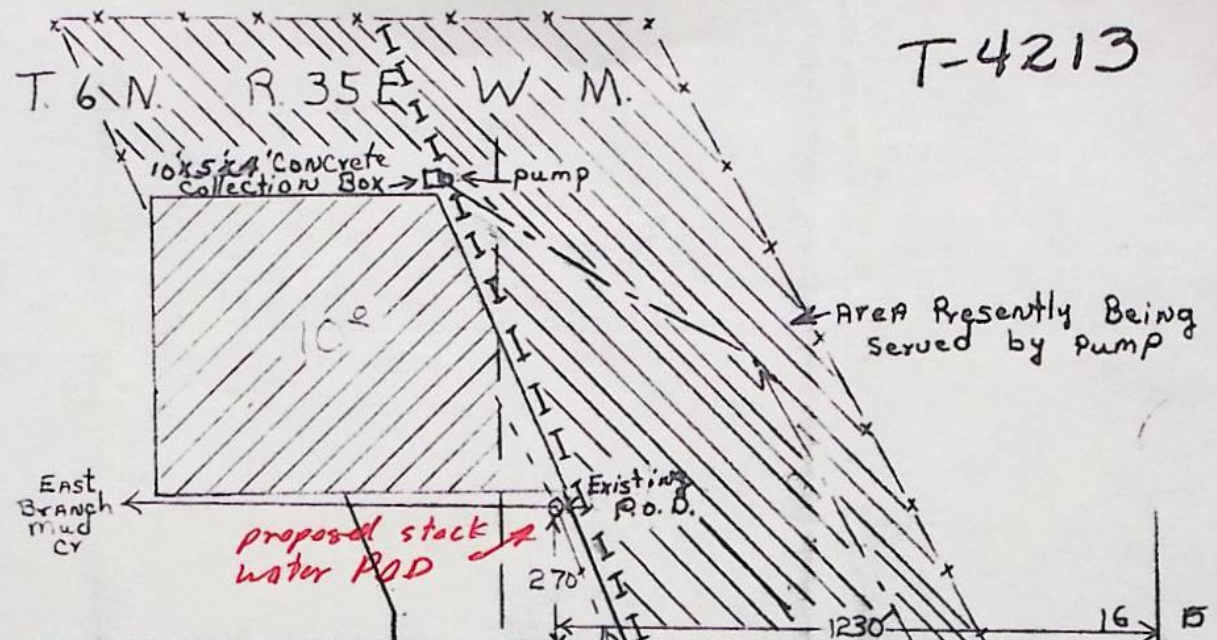 T-4213
T. 6 N. R. 35 E W. M.
10'x5'x4' Concrete
Collection Box
pump
10º
Area Presently Being
Served by Pump
East
Branch
Mud
Cr
Existing
P.O.D.
proposed stock
water POD
270'
1230'
16 15